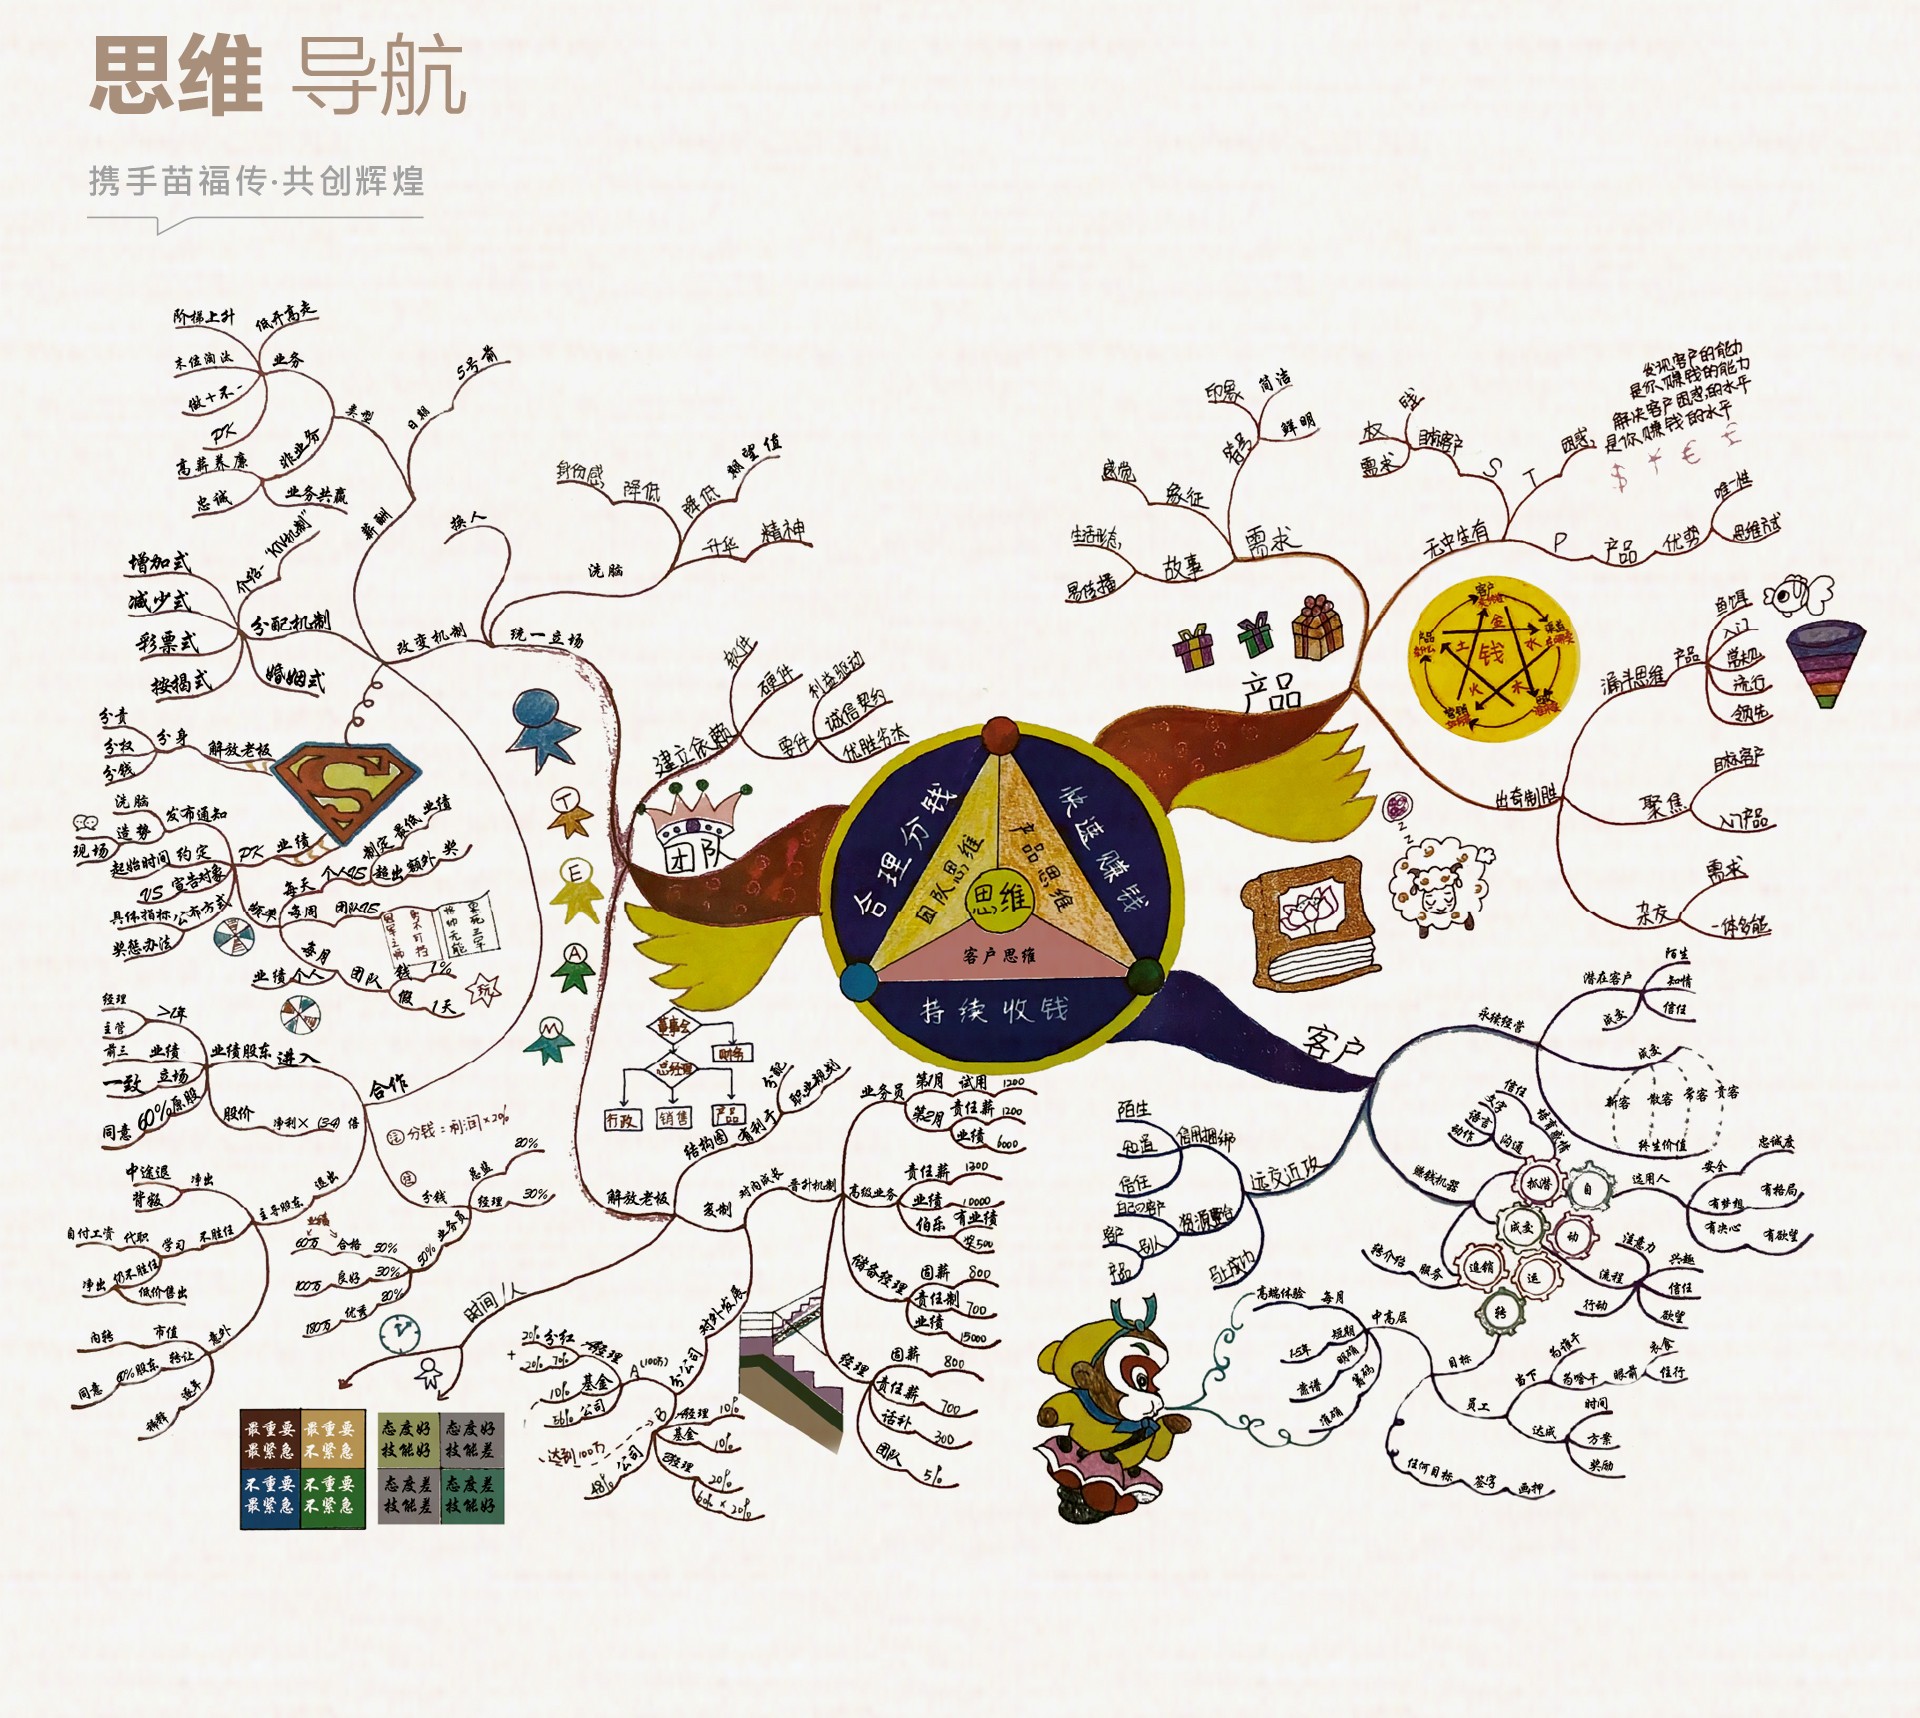 思维 导航
携手苗福传·共创辉煌
阶梯上升
低开高走
末位淘汰
业务
做十不一
PK
类型
非业务
高薪养廉
忠诚
业务共赢
日期
5号前
薪酬
换人
增加式
减少式
彩票式
按揭式
婚姻式
分配机制
改变机制
统一立场
洗脑
身份感
降低
降低
期望值
升华
精神
分责
分权
分钱
分身
解放老板
洗脑
造势
现场
发布通知
起始时间 约定
VS 宣告对象
具体指标 公布方式
奖惩办法
PK
业绩
制定 最低 业绩
超出 额外 奖
每天
个人VS
每周
团队VS
每月
业绩 个人
团队
钱
1%
假
1天
玩
建立依赖
软件
硬件
要件
利益驱动
诚信契约
优胜劣汰
团队
T
E
A
M
经理
主管
>1年
前三 业绩
一致 立场
同意 60%原股
业绩股东
进入
股价
净利×(3-4)倍
合作
分钱=利润×20%
中途退
背叛
净出
自付工资 代职 学习 不胜任
仍不胜任
净出
低价售出
主导股东
退出
内转
市值
同意
60%股东
转让
意外
逐年
稀释
分钱
总监
20%
经理
30%
业务员
50%
业绩
60万 合格 50%
100万 良好 30%
180万 优秀 20%
时间/人
最重要
最紧急
最重要
不紧急
不重要
最紧急
不重要
不紧急
态度好
技能好
态度好
技能差
态度差
技能差
态度差
技能好
董事会
财务
总经理
行政
销售
产品
结构图
有利于
分配
职业规划
解放老板
复制
对内成长
晋升机制
业务员
第1月 试用 1200
第2月 责任薪 1200
业绩 6000
高级业务
责任薪 1200
业绩 10000
伯乐 有业绩
奖500
储备经理
固薪 800
责任制 700
业绩 15000
经理
固薪 800
责任薪 700
话补 300
团队 5%
对外发展
分公司
A(100万)
A经理
20% 分红
+
20% 70%
10% 基金
56% 公司
达到100万
B
A经理 10%
基金 10%
B经理 20%
公司
48%
合理分钱
快速赚钱
持续收钱
团队思维
产品思维
客户思维
思维
产品
需求
象征
感觉
故事
生活形态
易传播
符号
印象
简洁
鲜明
无中生有
S
目标客户
权
钱
需求
T
困惑
发现客户的能力
是你赚钱的能力
解决客户困惑的水平
是你赚钱的水平
$ ¥ € £
P
产品
优势
唯一性
思维方式
客户
金
土
水
火
木
钱
产品
营销
出奇制胜
漏斗思维
产品
鱼饵
入门
常规
流行
领先
聚焦
目标客户
入门产品
杂交
需求
一体多能
客户
永续经营
潜在客户
陌生
知情
信任
成交
成交
新客
散客
常客
贵客
终生价值
远交近攻
信用捆绑
陌生
知道
信任
资源整合
自己の客户
别人
客户
产品
马上成功
赚钱机器
培育感情
信任
文字
语言
动作
沟通
抓潜
自
成交
动
追销
运
转
选用人
安全
忠诚度
有梦想
有格局
有决心
有欲望
流程
注意力
兴趣
信任
欲望
行动
服务
转介绍
目标
中高层
每月
高端体验
短期
1-5年
明确
靠谱
准确
员工
当下
为谁干
为啥干
眼前
衣食
住行
达成
时间
方案
奖励
任何目标
签字
画押